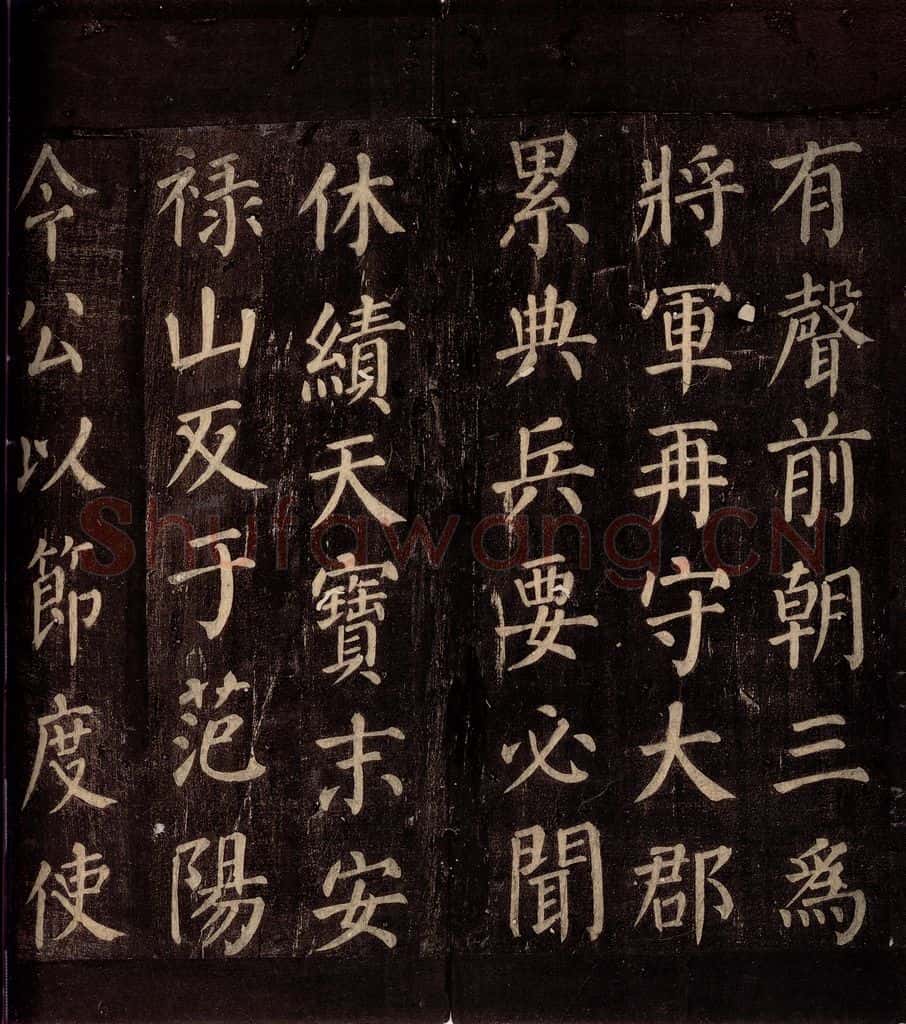 有聲前朝三為
將軍再守大郡
累典兵要必聞
休績天寶末安
禄山反于范陽
今公以節度使
Shufawang.CN